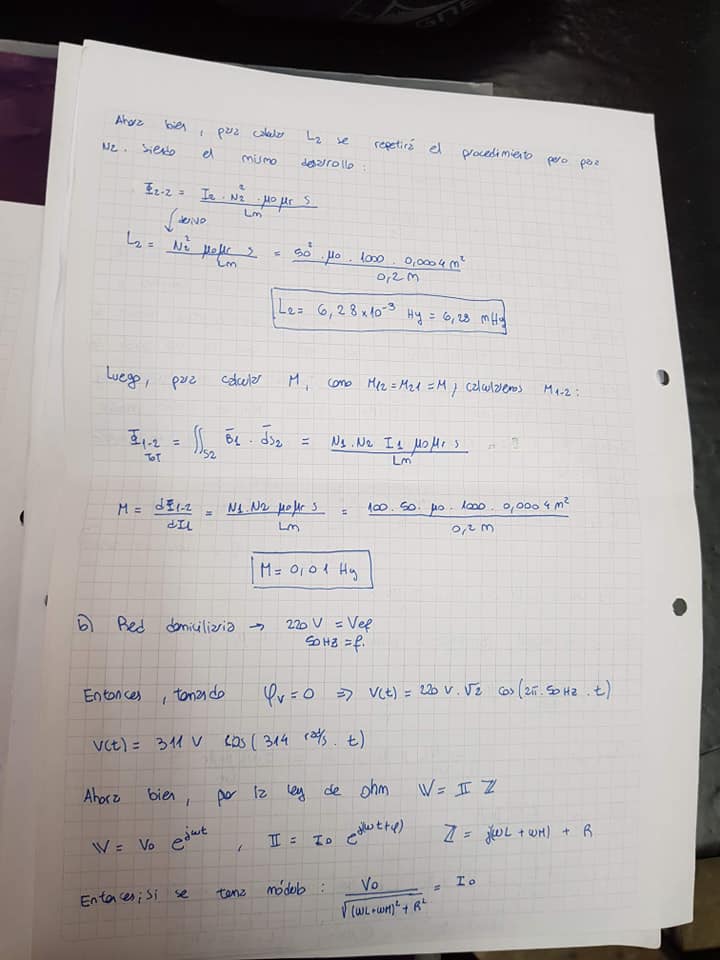 Ahora bien, para calcular L2 se repetirá el procedimiento pero para
N2. Siendo el mismo desarrollo:
Φ2-2 = I2 · N2² · μo μr S / Lm
derivo
L2 = N2² μo μr S / Lm = 50² · μo · 1000 · 0,0004 m² / 0,2 m
L2 = 6,28 x 10⁻³ Hy = 6,28 mHy
Luego, para calcular M, como M12 = M21 = M, calcularemos M1-2:
Φ1-2 TOT = ∬S2 B̄1 · d̄s2 = N1 · N2 I1 μo μr s / Lm
M = dΦ1-2 / dI1 = N1 · N2 μo μr s / Lm = 100 · 50 · μo · 1000 · 0,0004 m² / 0,2 m
M = 0,01 Hy
b) Red domiciliaria → 220 V = Vef
50 Hz = f.
Entonces, tomando φv = 0 ⇒ V(t) = 220 V · √2 cos (2π · 50 Hz · t)
V(t) = 311 V cos (314 rad/s · t)
Ahora bien, por la ley de ohm 𝕍 = 𝕀 ℤ
𝕍 = Vo e^jωt , 𝕀 = Io e^j(ωt+φ) ℤ = j(ωL + ωM) + R
Entonces, si se toma módulo: Vo / √((ωL+ωM)² + R²) = Io